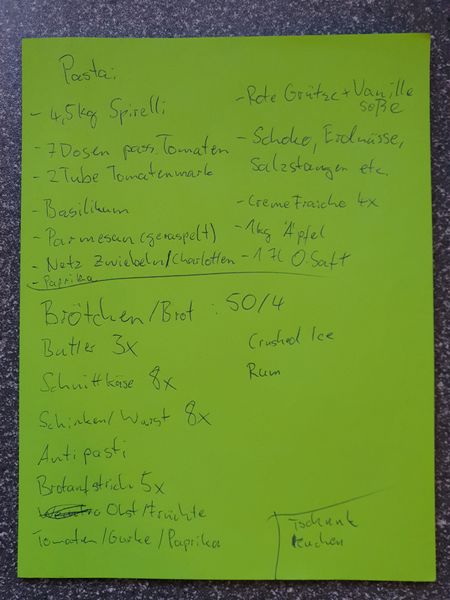 Pasta:
- 4,5kg Spirelli
- 7 Dosen pass. Tomaten
- 2 Tube Tomatenmark
- Basilikum
- Parmesan (geraspelt)
- Netz Zwiebeln/Charlotten
- Paprika
- Rote Grütze + Vanille
soße
- Schoko, Erdnüsse,
Salzstangen etc.
- Creme Fraiche 4x
- 1kg Äpfel
- 1 O.Saft
Brötchen/Brot : 50/4
Butter 3x
Schnittkäse 8x
Schinken/Wurst 8x
Antipasti
Brotaufstrich 5x
Obst/Früchte
Tomaten/Gurke/Paprika
Crushed Ice
Rum
Tschunk
Kuchen